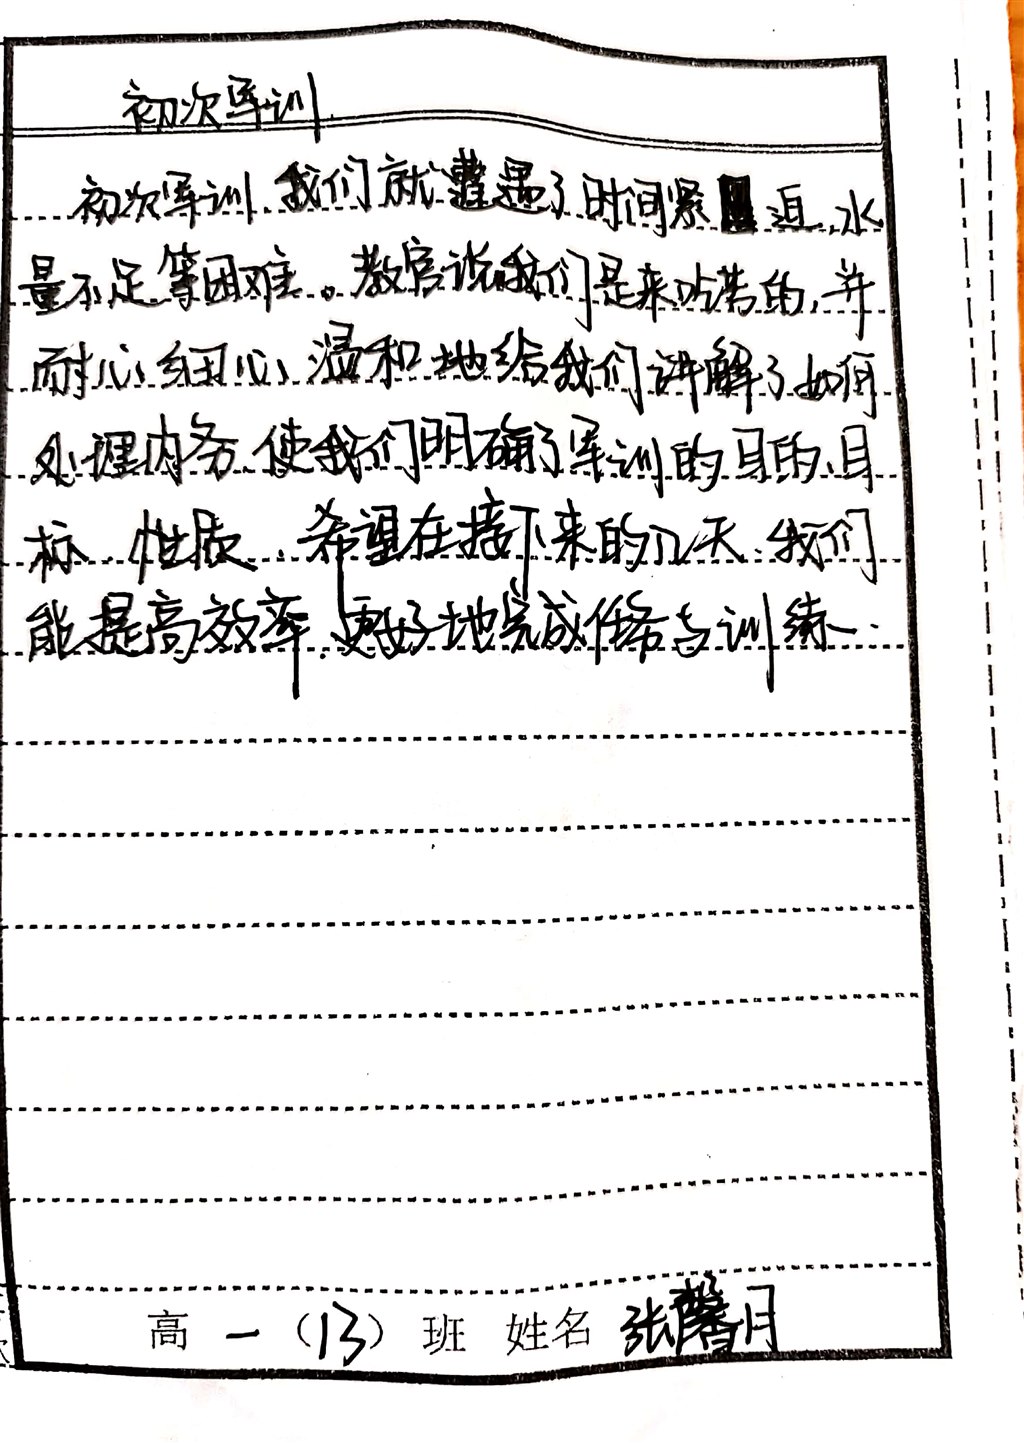 初次军训
初次军训,我们就遭遇了时间紧迫,水
量不足等困难。教官说我们是来吃苦的,并
耐心细心温和地给我们讲解了如何
处理内务,使我们明确了军训的目的、目
标、性质,希望在接下来的几天,我们
能提高效率,更好地完成任务与训练.
高一(13)班 姓名 张馨月